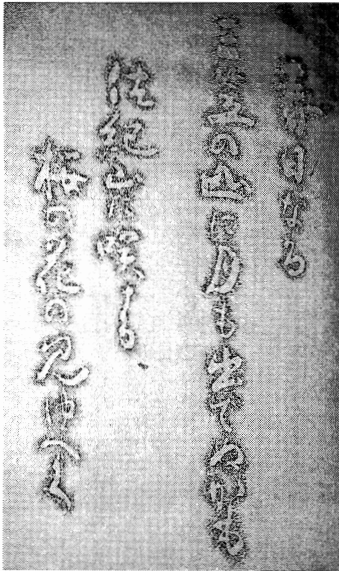 春日なる
三笠の山に月も出てぬかも
佐紀山に咲ける
桜の花の見ゆへく